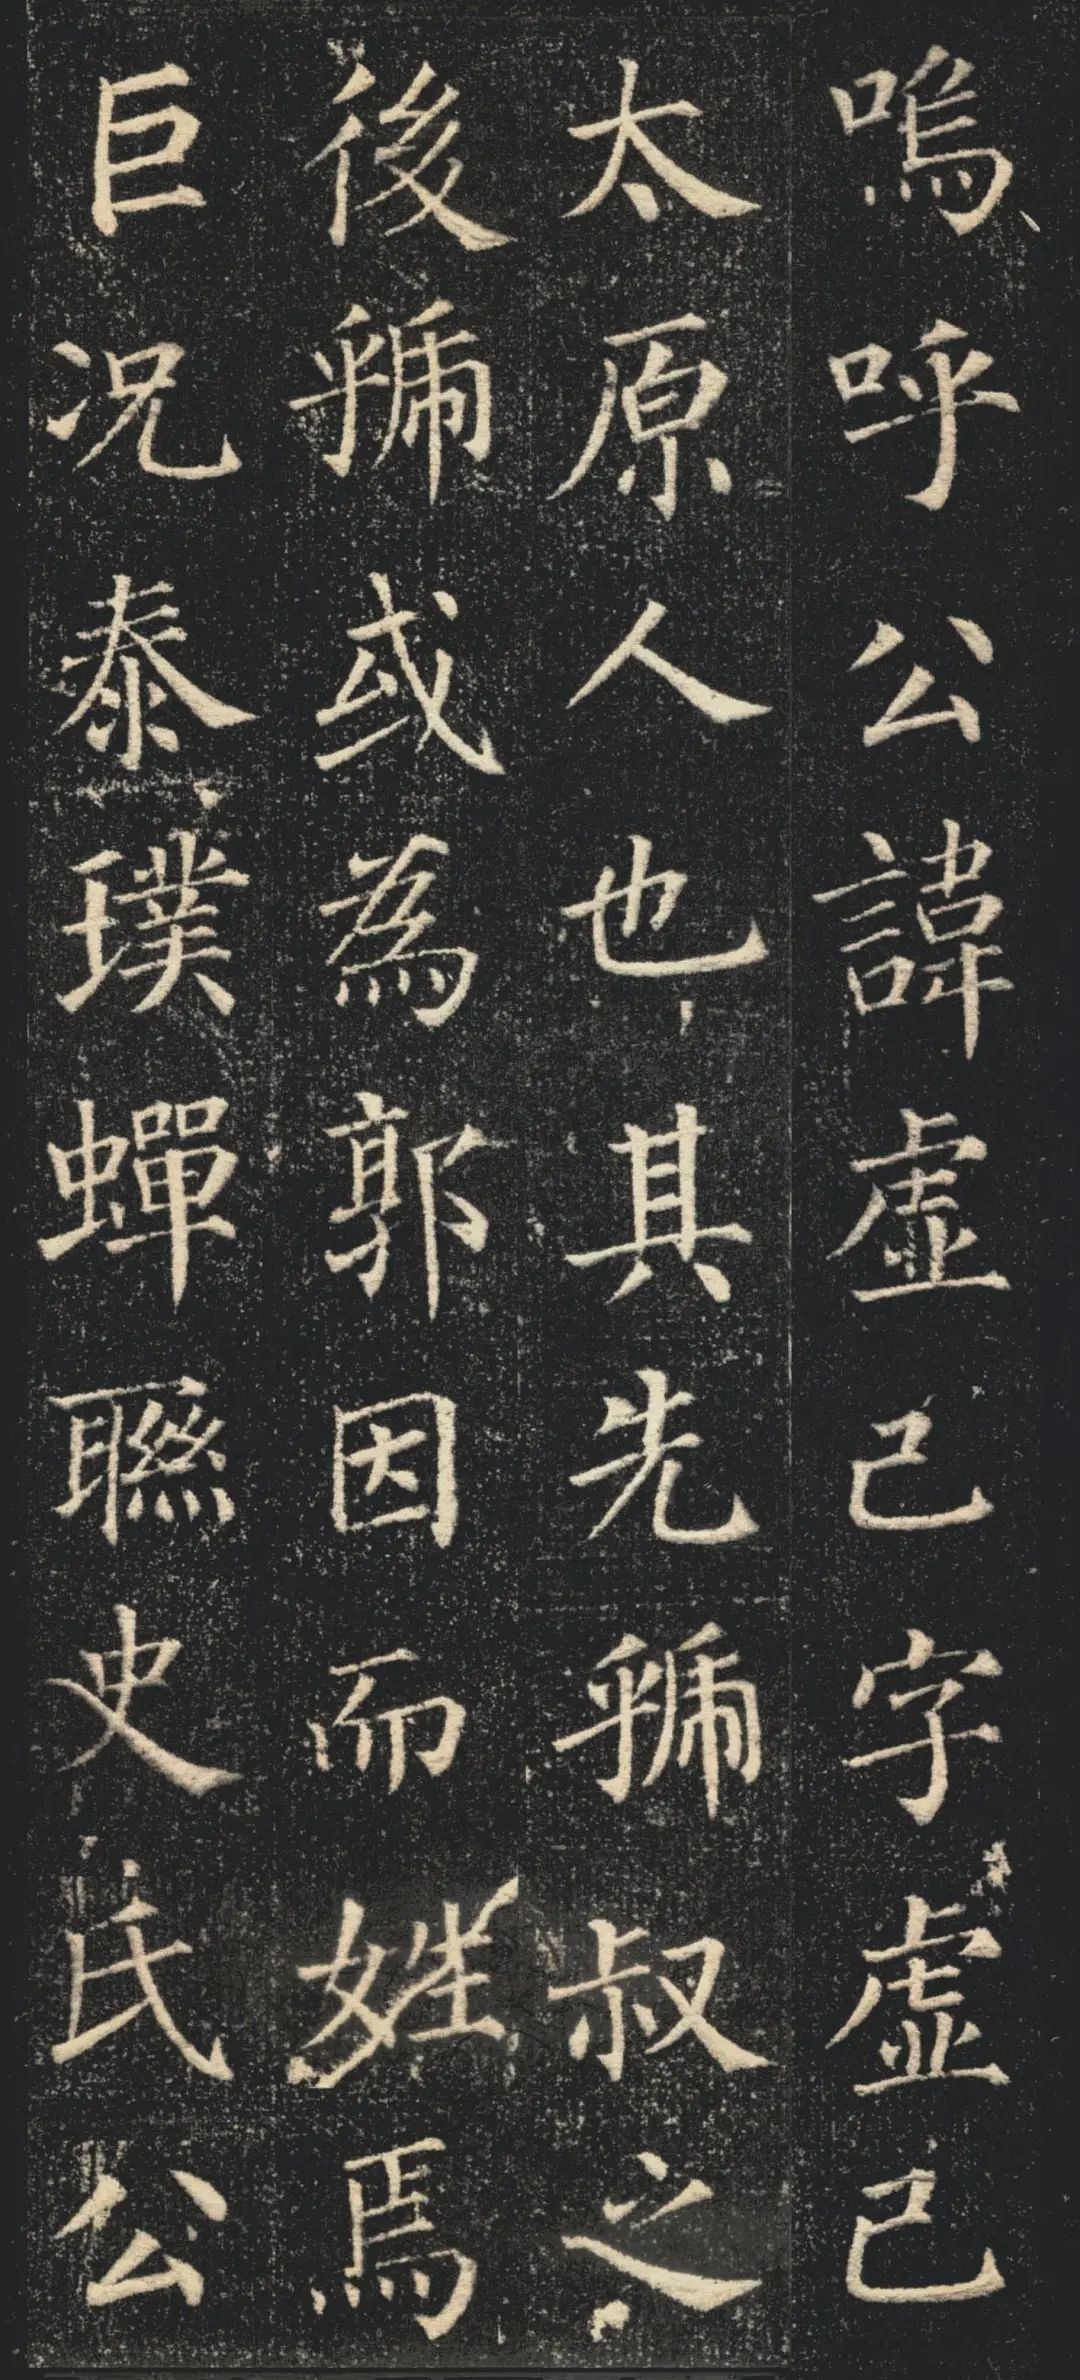 嗚呼公諱虛己字虛己
太原人也其先號叔之
後號或為郭因而姓焉
巨況泰璞蟬聯史氏公